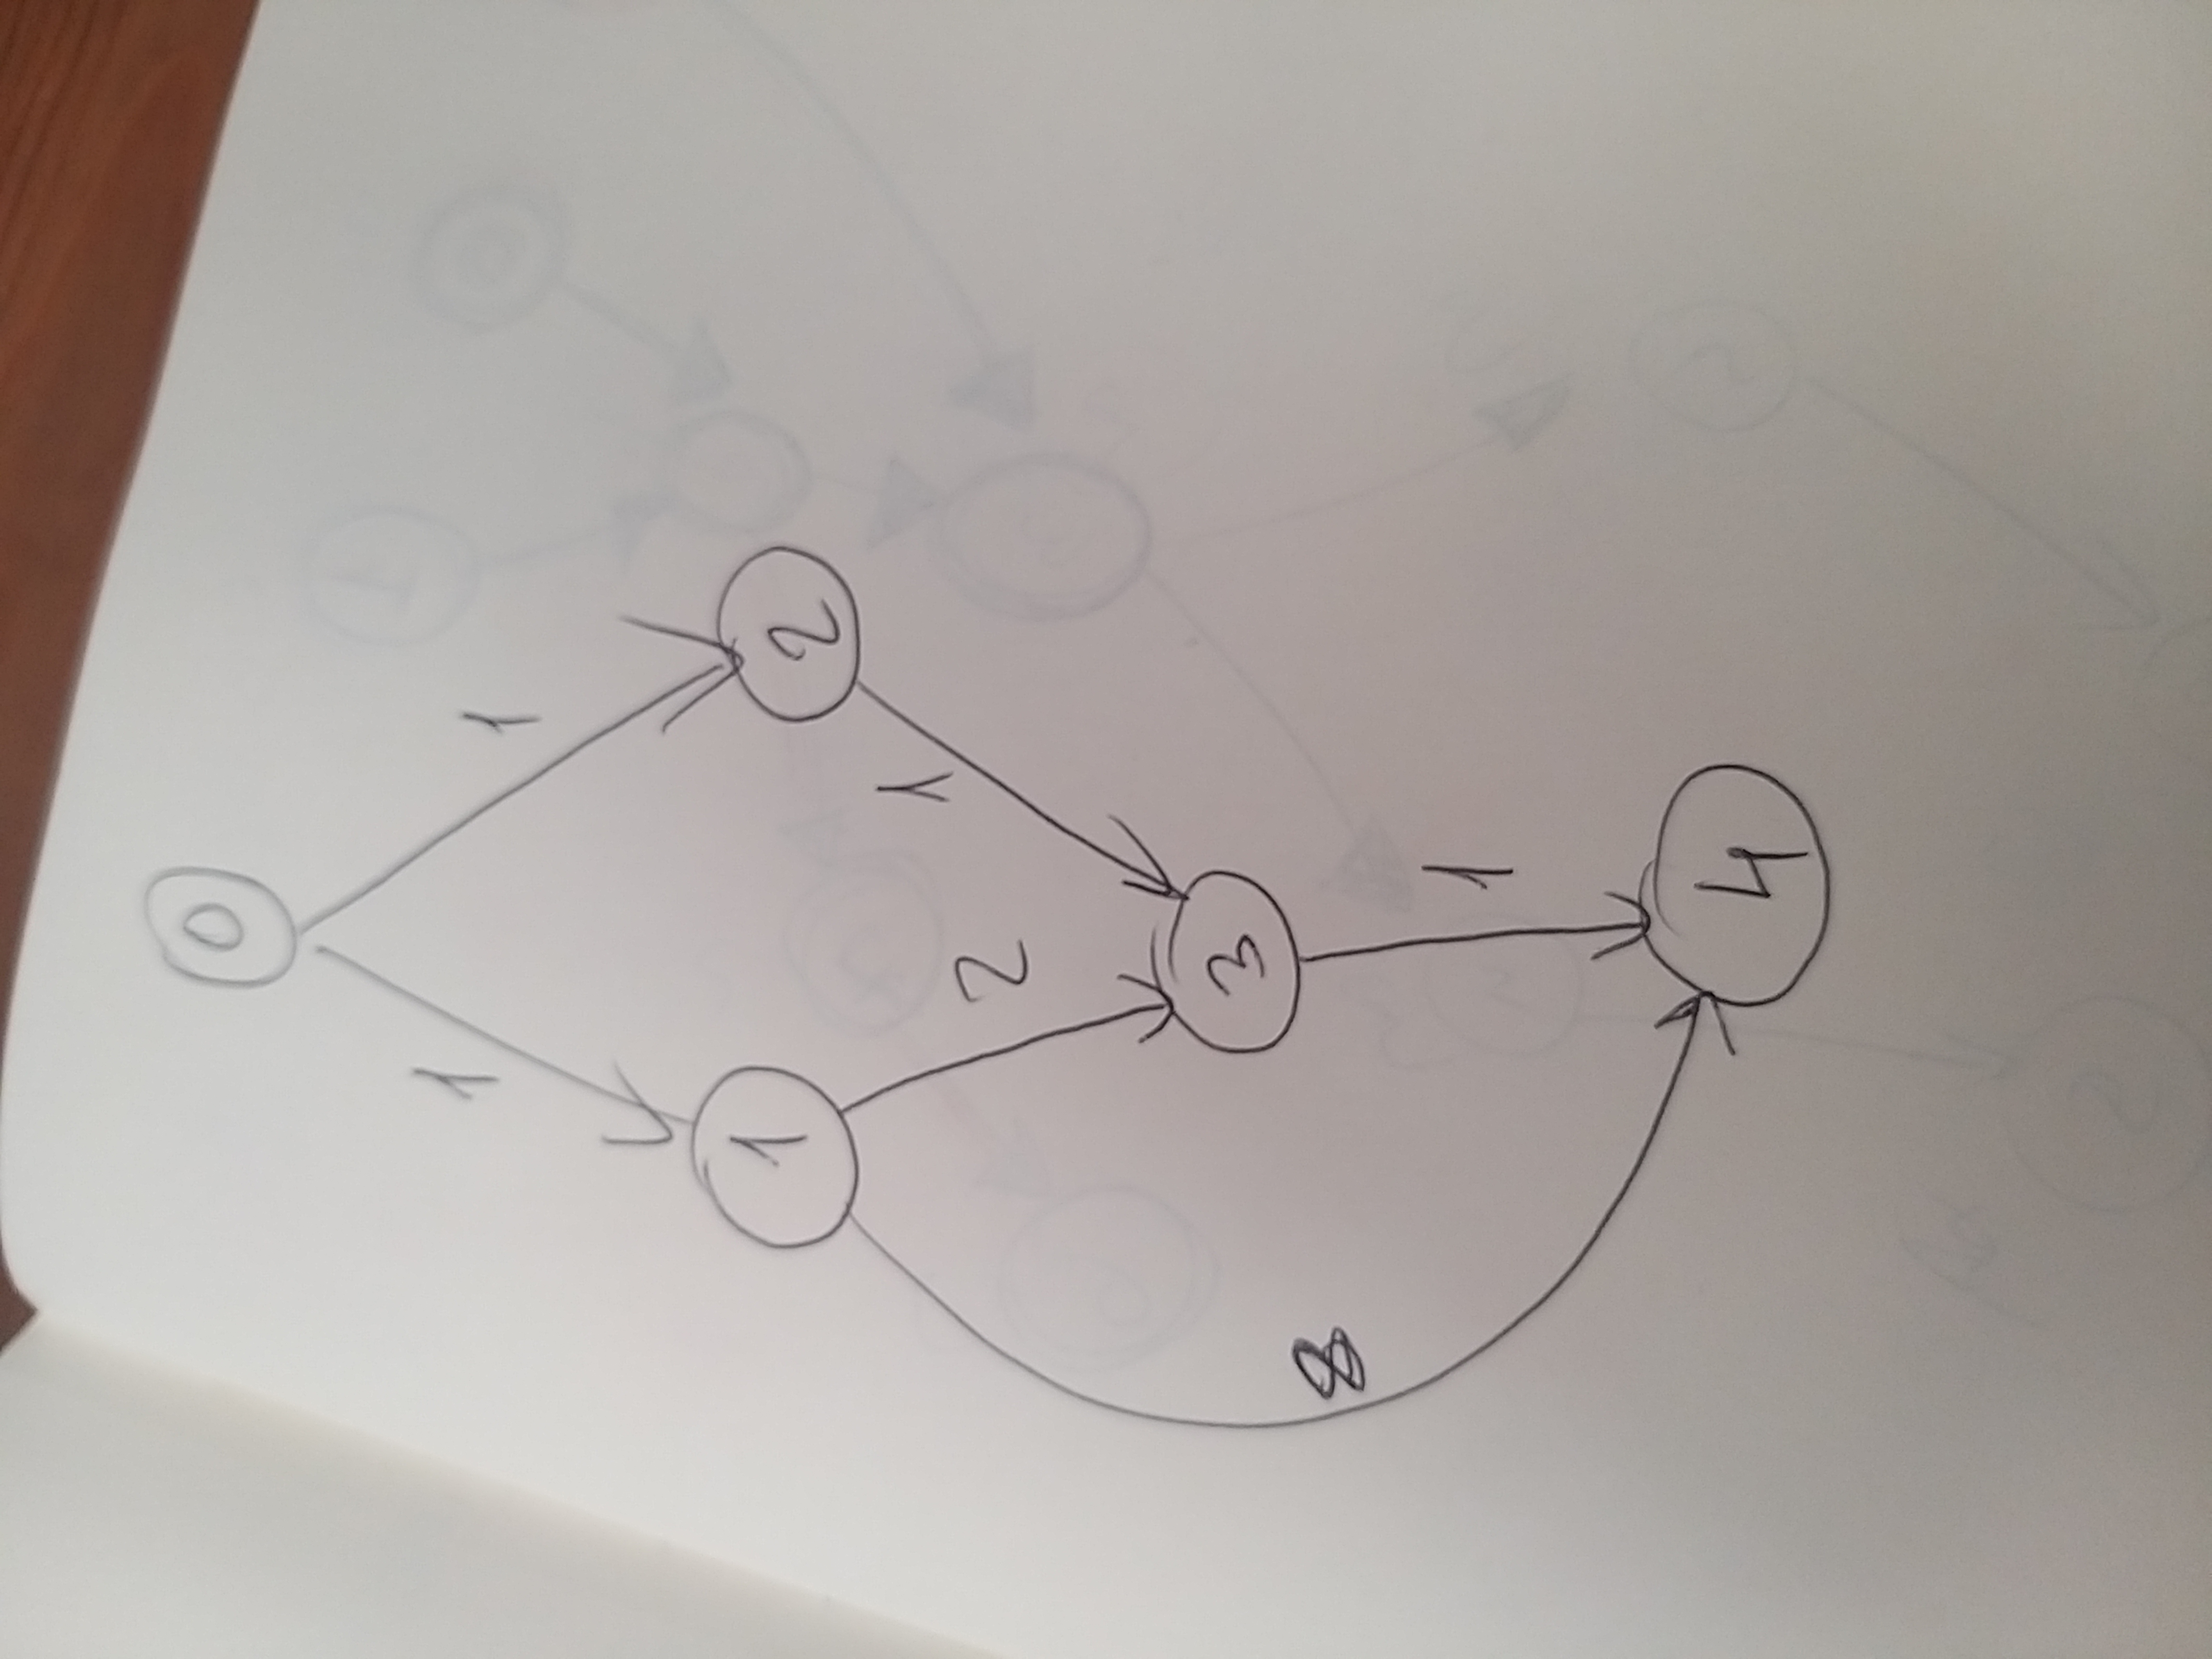 0
1 1
1 2
2 1
3
8
1
4